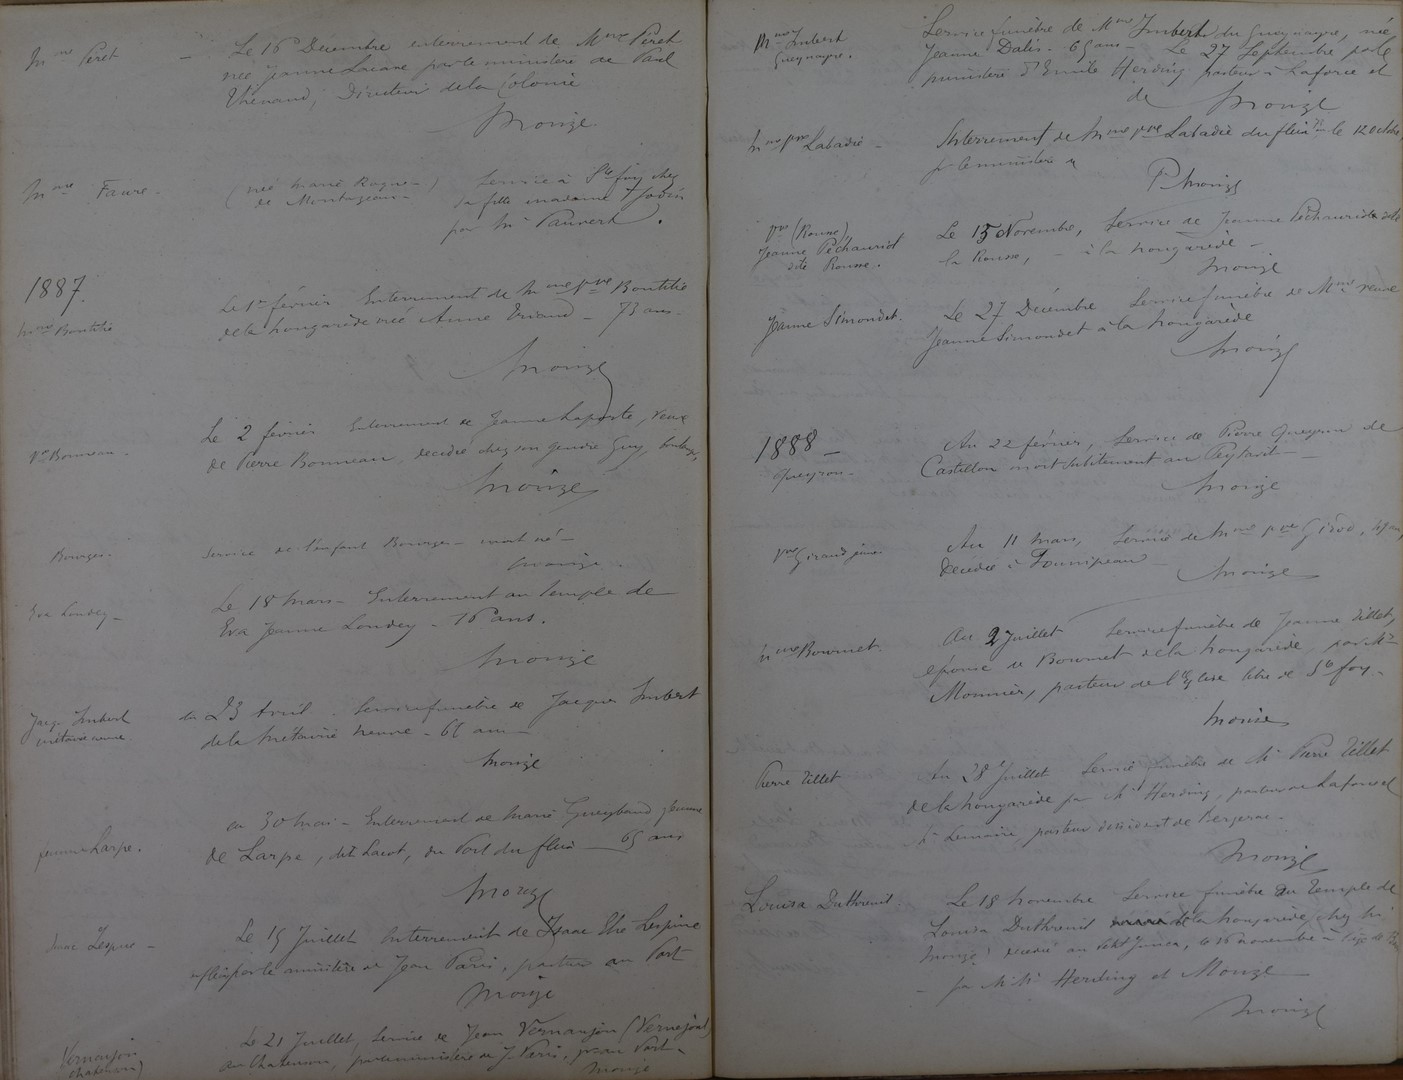 Mme Péret — Le 16 Décembre enterrement de Mme Péret
née Jeanne Lacane par le ministère de Paul
Thénaud, Directeur de la Colonie
Monize
Mme Faure. (née Marie Roque) Service à Ste foy chez
de Montazeau sa fille madame
par Mr Pauvert.
1887.
Mme Bontitié Le 1er février Enterrement de Mme vve Bontitié
de la hongarède née Anne Briand — 73 ans.
Monize
Vve Bonneau. Le 2 février Enterrement de Jeanne Laporte, veuve
de Pierre Bonneau décédée chez son gendre Guy,
Monize
Bourges. Service de l'enfant Bourges — mort né —
Monize.
Eva Loudey — Le 18 Mars — Enterrement au temple de
Eva Jeanne Loudey — 16 ans.
Monize
Jacq. Imbert du 23 Avril Service funèbre de Jacques Imbert
métairie neuve de la Métairie neuve — 66 ans
Monize
femme Larpe. du 30 Mai — Enterrement de Marie Gueybaud femme
de Larpe, dit Lacot, du Port du fleix — 65 ans
Monize
Isaac Lespine — Le 15 Juillet Enterrement de Isaac Élie Lespine
par le ministère de Jean Paris, pasteur au Port
Monize
Vernaujon Le 21 Juillet, Service de Jean Vernaujon (Vernejoul)
au Chatenson, par le ministère de J. Paris, au Port —
Monize
Mme Imbert Service funèbre de Mme Imbert du Gueynayre, née
Gueynayre. Jeanne Dalis — 69 ans — Le 27 Septembre par le
ministère d'Emile Herding pasteur à Laforce et
de Monize
Mme vve Labadié — Enterrement de Mme vve Labadié du fleix le 12 Octobre
par le ministère de
P. Monize
vve (Rousse) Le 15 Novembre, Service de Jeanne Péchauriol dite
Jeanne Péchauriol la Rousse, — à la hongarède —
dite Rousse. Monize
Jeanne Simondet. Le 27 Décembre Service funèbre de Mme veuve
Jeanne Simondet à la hongarède
Monize
1888 —
Queyron — Au 22 février, Service de Pierre Queyron de
Castillon mort subitement au —
Monize
Vve Giraud Au 11 Mars, Service de Mme vve
Décédée à —
Monize
Mme Bournet. Au 2 Juillet Service funèbre de Jeanne Tillet,
épouse de Bournet de la hongarède, par Mr
Monnier, pasteur de l'Eglise libre de Ste foy —
Monize
Pierre Tillet Au 28 Juillet Service funèbre de Mr Pierre Tillet
de la hongarède par Mr Herding, pasteur de Laforce et
Mr Lemaire, pasteur dissident de Bergerac —
Monize
Louisa Duthreuil. Le 18 Novembre Service funèbre au temple de
Louisa Duthreuil de la hongarède, chez Mr
Monize décédée au petit Junca, le 16 novembre à l'âge de
— par MM Herding et Monize —
Monize